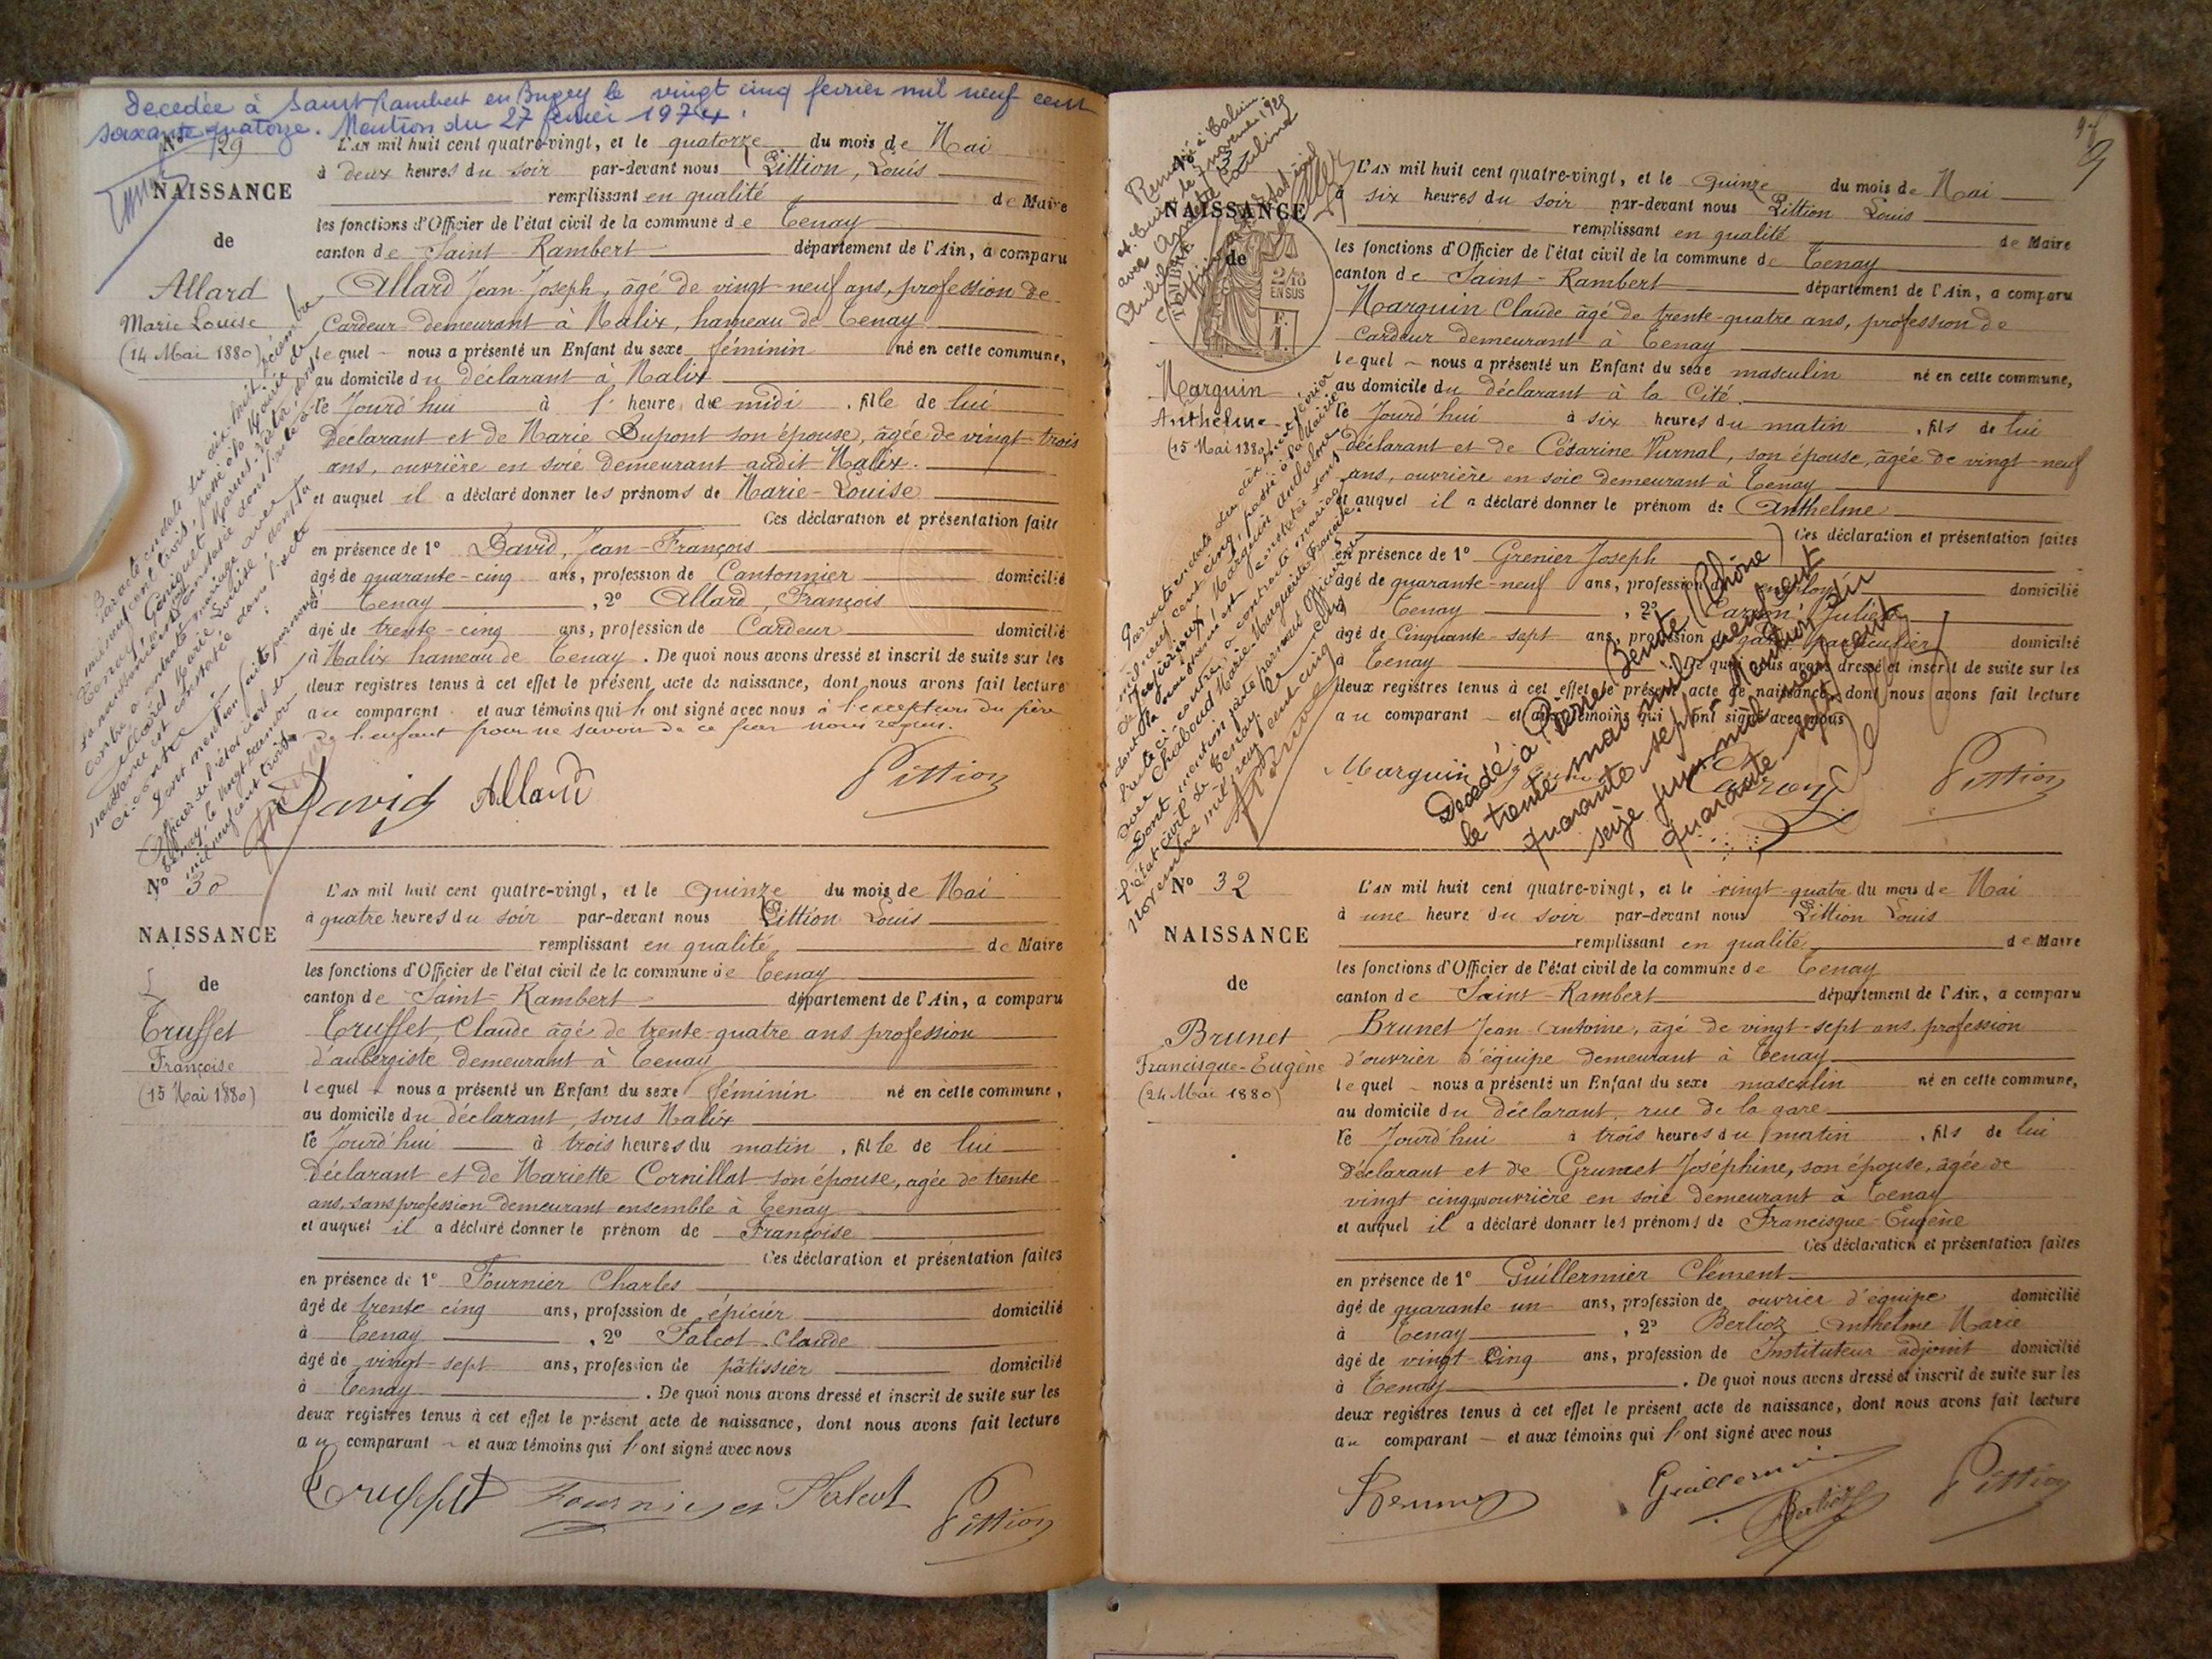 Decedée à Saint Rambert en Bugey le vingt cinq fevrier mil neuf cent
soixante quatorze. Mention du 27 fevrier 1974.
No 29
NAISSANCE
de
Allard
Marie Louise
(14 Mai 1880)
L'AN mil huit cent quatre-vingt, et le quatorze du mois de Mai
à deux heures du soir par-devant nous Pittion, Louis
remplissant en qualité de Maire
les fonctions d'Officier de l'état civil de la commune de Tenay
canton de Saint-Rambert département de l'Ain, a comparu
Allard Jean-Joseph, âgé de vingt-neuf ans, profession de
Cardeur demeurant à Malix, hameau de Tenay
lequel nous a présenté un Enfant du sexe féminin né en cette commune,
au domicile du déclarant à Malix
le Jourd'hui à 1 heure de midi, fille de lui
déclarant et de Marie Dupont son épouse, âgée de vingt-trois
ans, ouvrière en soie demeurant audit Malix.
et auquel il a déclaré donner les prénoms de Marie-Louise
Ces déclaration et présentation faites
en présence de 1° David, Jean-François
âgé de quarante-cinq ans, profession de Cantonnier domicilié
à Tenay, 2° Allard, François
âgé de trente-cinq ans, profession de Cardeur domicilié
à Malix hameau de Tenay. De quoi nous avons dressé et inscrit de suite sur les
deux registres tenus à cet effet le présent acte de naissance, dont nous avons fait lecture
au comparant et aux témoins qui l'ont signé avec nous à l'exception du père
de l'enfant pour ne savoir de ce
David Allard Pittion
No 30
NAISSANCE
de
Truffet
Françoise
(15 Mai 1880)
L'AN mil huit cent quatre-vingt, et le Quinze du mois de Mai
à quatre heures du soir par-devant nous Pittion Louis
remplissant en qualité de Maire
les fonctions d'Officier de l'état civil de la commune de Tenay
canton de Saint-Rambert département de l'Ain, a comparu
Truffet, Claude âgé de trente-quatre ans profession
d'aubergiste demeurant à Tenay
lequel nous a présenté un Enfant du sexe féminin né en cette commune,
au domicile du déclarant, sous Malix
le Jourd'hui à trois heures du matin, fille de lui
déclarant et de Mariette Cornillat son épouse, agée de trente
ans, sans profession demeurant ensemble à Tenay
et auquel il a déclaré donner le prénom de Françoise
Ces déclaration et présentation faites
en présence de 1° Fournier Charles
âgé de trente cinq ans, profession de épicier domicilié
à Tenay, 2° Falcot Claude
âgé de vingt-sept ans, profession de pâtissier domicilié
à Tenay. De quoi nous avons dressé et inscrit de suite sur les
deux registres tenus à cet effet le présent acte de naissance, dont nous avons fait lecture
au comparant et aux témoins qui l'ont signé avec nous
Truffet Fournier Falcot Pittion
NAISSANCE
de
2/10
EN SUS
Marguin
Anthelme
(15 Mai 1880)
L'AN mil huit cent quatre-vingt, et le Quinze du mois de Mai
à six heures du soir par-devant nous Pittion Louis
remplissant en qualité de Maire
les fonctions d'Officier de l'état civil de la commune de Tenay
canton de Saint-Rambert département de l'Ain, a comparu
Marguin Claude âgé de trente-quatre ans, profession de
Cardeur demeurant à Tenay
lequel nous a présenté un Enfant du sexe masculin né en cette commune,
au domicile du déclarant à la Cité
le Jourd'hui à six heures du matin, fils de lui
déclarant et de Césarine Vurnal, son épouse, âgée de vingt-neuf
ans, ouvrière en soie demeurant à Tenay
et auquel il a déclaré donner le prénom de Anthelme
Ces déclaration et présentation faites
en présence de 1° Grenier Joseph
âgé de quarante-neuf ans, profession d'employé domicilié
à Tenay, 2° Carron Julien
âgé de Cinquante-sept ans, profession de garde particulier domicilié
à Tenay De quoi nous avons dressé et inscrit de suite sur les
deux registres tenus à cet effet le présent acte de naissance, dont nous avons fait lecture
au comparant et aux témoins qui l'ont signé avec nous
Decédé à Pierre Bénite (Rhône)
le trente mai mil neuf cent
quarante sept. Mention du
seize juin mil neuf cent
quarante sept
Marguin Carron Pittion
No 32
NAISSANCE
de
Brunet
Francisque-Eugène
(24 Mai 1880)
L'AN mil huit cent quatre-vingt, et le vingt-quatre du mois de Mai
à une heure du soir par-devant nous Pittion Louis
remplissant en qualité de Maire
les fonctions d'Officier de l'état civil de la commune de Tenay
canton de Saint-Rambert département de l'Ain, a comparu
Brunet Jean-Antoine, âgé de vingt-sept ans, profession
d'ouvrier d'équipe demeurant à Tenay
lequel nous a présenté un Enfant du sexe masculin né en cette commune,
au domicile du déclarant, rue de la gare
le Jourd'hui à trois heures du matin, fils de lui
déclarant et de Grumet Joséphine, son épouse, âgée de
vingt cinq ans ouvrière en soie demeurant à Tenay
et auquel il a déclaré donner les prénoms de Francisque-Eugène
Ces déclaration et présentation faites
en présence de 1° Guillermier Clément
âgé de quarante-un ans, profession de ouvrier d'équipe domicilié
à Tenay, 2° Berlioz Anthelme Marie
âgé de vingt-Cinq ans, profession de Instituteur-adjoint domicilié
à Tenay. De quoi nous avons dressé et inscrit de suite sur les
deux registres tenus à cet effet le présent acte de naissance, dont nous avons fait lecture
au comparant et aux témoins qui l'ont signé avec nous
Brunet Guillermier Berlioz Pittion